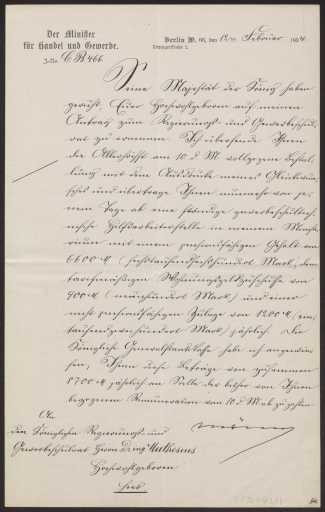 Der Minister
für Handel und Gewerbe.
J.-Nr. C. B 466
Berlin W. 66, den 12ten Februar 1904
Leipzigerstraße 2.
Seine Majestät der König haben
geruht, Euer Hochwohlgeboren auf meinen
Antrag zum Regierungs- und Gewerbeschul-
rat zu ernennen. Ich übersende Ihnen
die Allerhöchst am 10. d. M. vollzogene Bestal-
lung mit dem Ausdrucke meines Glückwun-
sches und übertrage Ihnen nunmehr von je-
nem Tage ab eine ständige gewerbeschultech-
nische Hilfsarbeiterstelle in meinem Ministe-
rium mit einem pensionsfähigen Gehalt von
6600 M (sechstausendsechshundert Mark), dem
tarifmäßigen Wohnungsgeldzuschusse von
900 M (neunhundert Mark) und einer
nicht pensionsfähigen Zulage von 1200 M (ein-
tausendzweihundert Mark) jährlich. Die
Königliche Generalstaatskasse habe ich angewie-
sen, Ihnen diese Beträge von zusammen
8700 M jährlich an Stelle der bisher von Ihnen
bezogenen Remuneration vom 10. d. M. ab zu zahlen.
An
den Königlichen Regierungs- und
Gewerbeschulrat Herrn Dr. ing. Muthesius
Hochwohlgeboren
hier